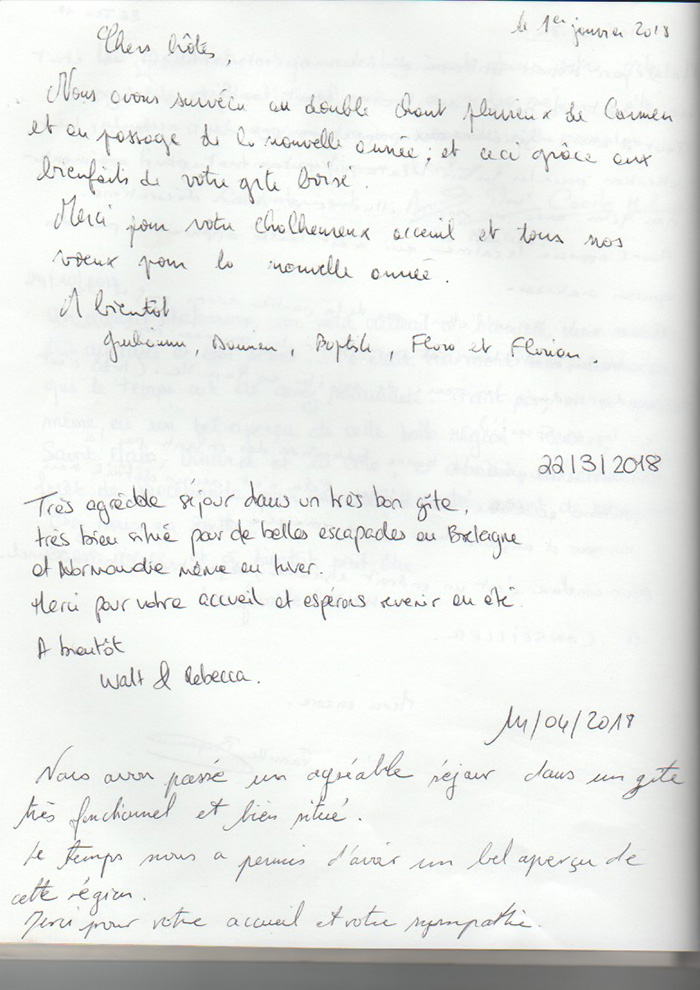 le 1er janvier 2018
Chers hôtes,
Nous avons survécu au double chant pluvieux de Carmen
et au passage de la nouvelle année; et ceci grâce aux
bienfaits de votre gîte boisé.
Merci pour votre chalheureux acceuil et tous nos
voeux pour la nouvelle année.
A bientôt
Damien, Baptiste, Flora et Florian.
22/3/2018
Très agréable séjour dans un très bon gîte,
très bien situé pour de belles escapades en Bretagne
et Normandie même en hiver.
Merci pour votre accueil et espérons revenir en été.
A bientôt
Walt & Rebecca.
11/04/2018
Nous avons passé un agréable séjour dans un gîte
très fonctionnel et bien situé.
Le temps nous a permis d'avoir un bel aperçu de
cette région.
Merci pour votre accueil et votre sympathie.